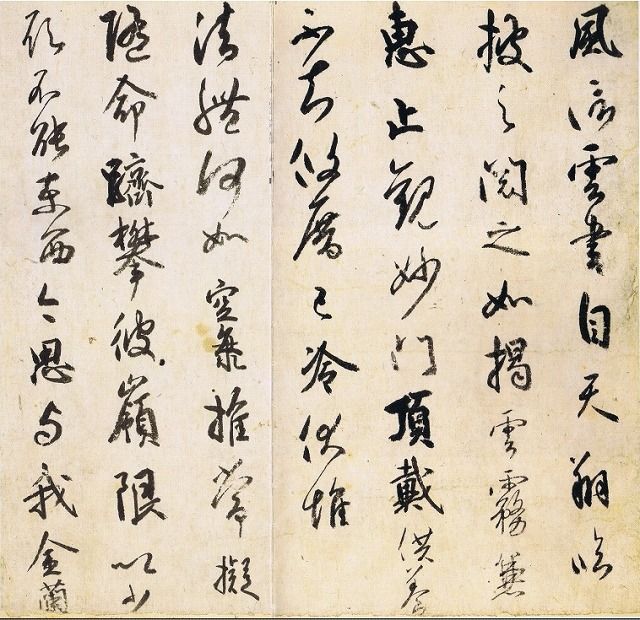 風信雲書自天翔臨
披之閱之如揭雲霧兼
惠止觀妙門頂戴供養
不知攸厝已冷伏惟
法體何如空海推常擬
隨命躋攀彼嶺限以少
願不能東西今思与我金蘭